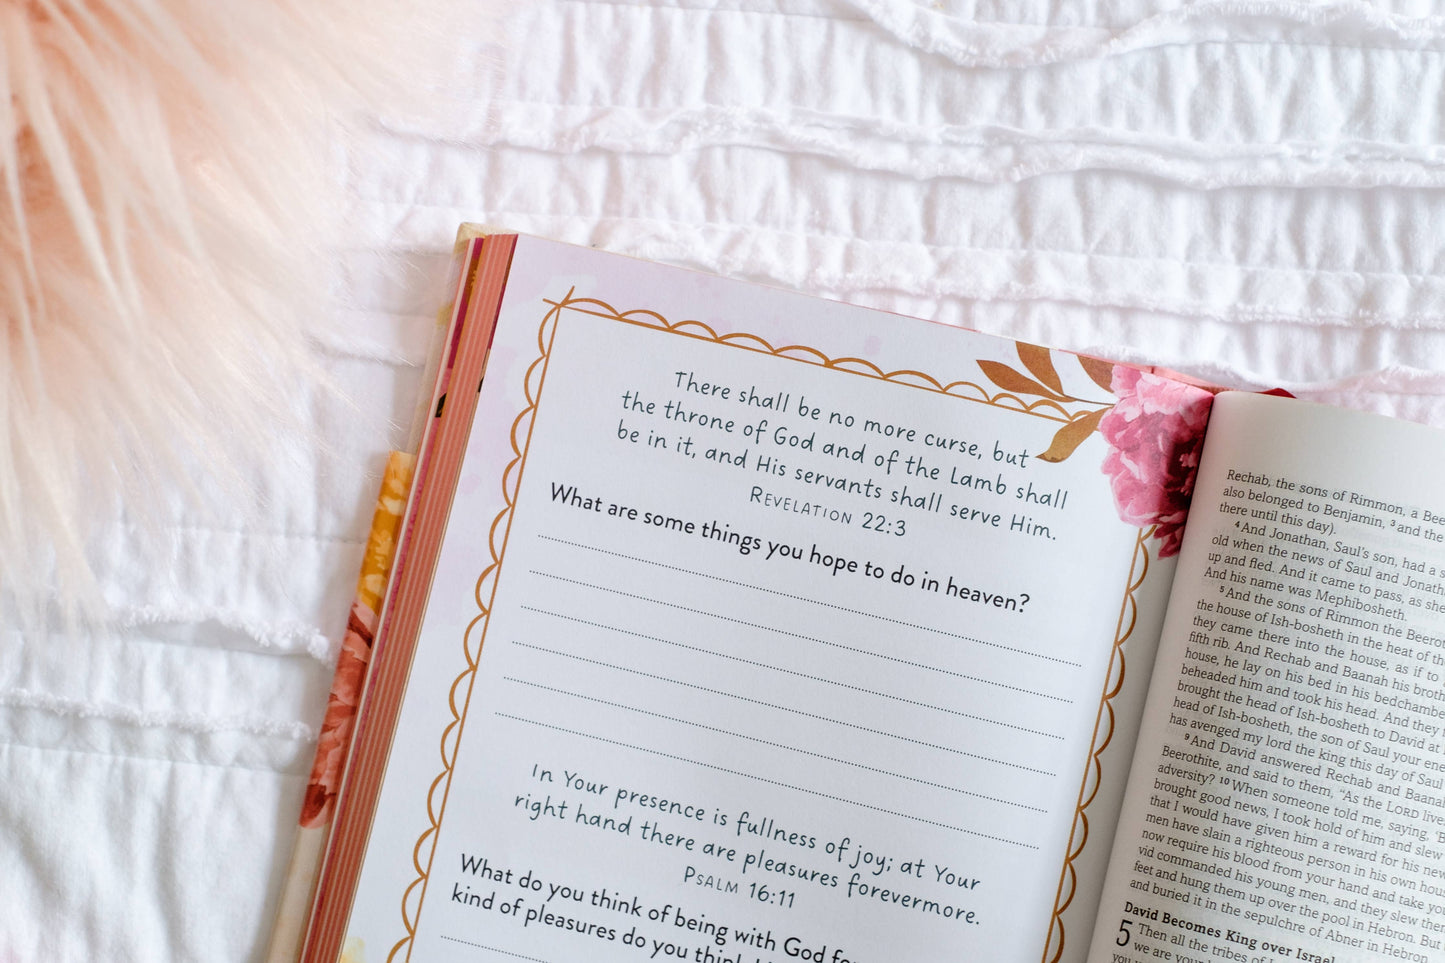 There shall be no more curse, but
the throne of God and of the Lamb shall
be in it, and His servants shall serve Him.
REVELATION 22:3
What are some things you hope to do in heaven?
In Your presence is fullness of joy; at Your
right hand there are pleasures forevermore.
PSALM 16:11
What do you think of being with God
kind of pleasures do you
Rechab, the sons of Rimmon, a
also belonged to Benjamin, 3 and the
there until this day).
4 And Jonathan, Saul's son, had a
old when the news of Saul and
up and fled. And it came to pass, as
And his name was Mephibosheth.
5 And the sons of Rimmon the
the house of Ish-bosheth in the heat of
they came there into the house, as if to
fifth rib. And Rechab and Baanah his
house, he lay on his bed in his
beheaded him and took his head. And they
brought the head of Ish-bosheth to David at
head of Ish-bosheth, the son of Saul your
has avenged my lord the king this day of Saul
9 And David answered Rechab and
Beerothite, and said to them, "As the LORD
adversity? 10 When someone told me, saying,
brought good news, I took hold of him and slew
that I would have given him a reward for his
men have slain a righteous person in his own
now require his blood from your hand and take
vid commanded his young men, and they slew
feet and hung them up over the pool in Hebron. But
and buried it in the sepulchre of Abner in Hebron
David Becomes King over Israel
5 Then all the tribes of
we are your